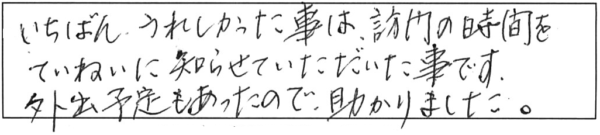 いちばん、うれしかった事は、訪門の時間を
ていねいに知らせていただいた事です。
外出予定もあったので、助かりました。